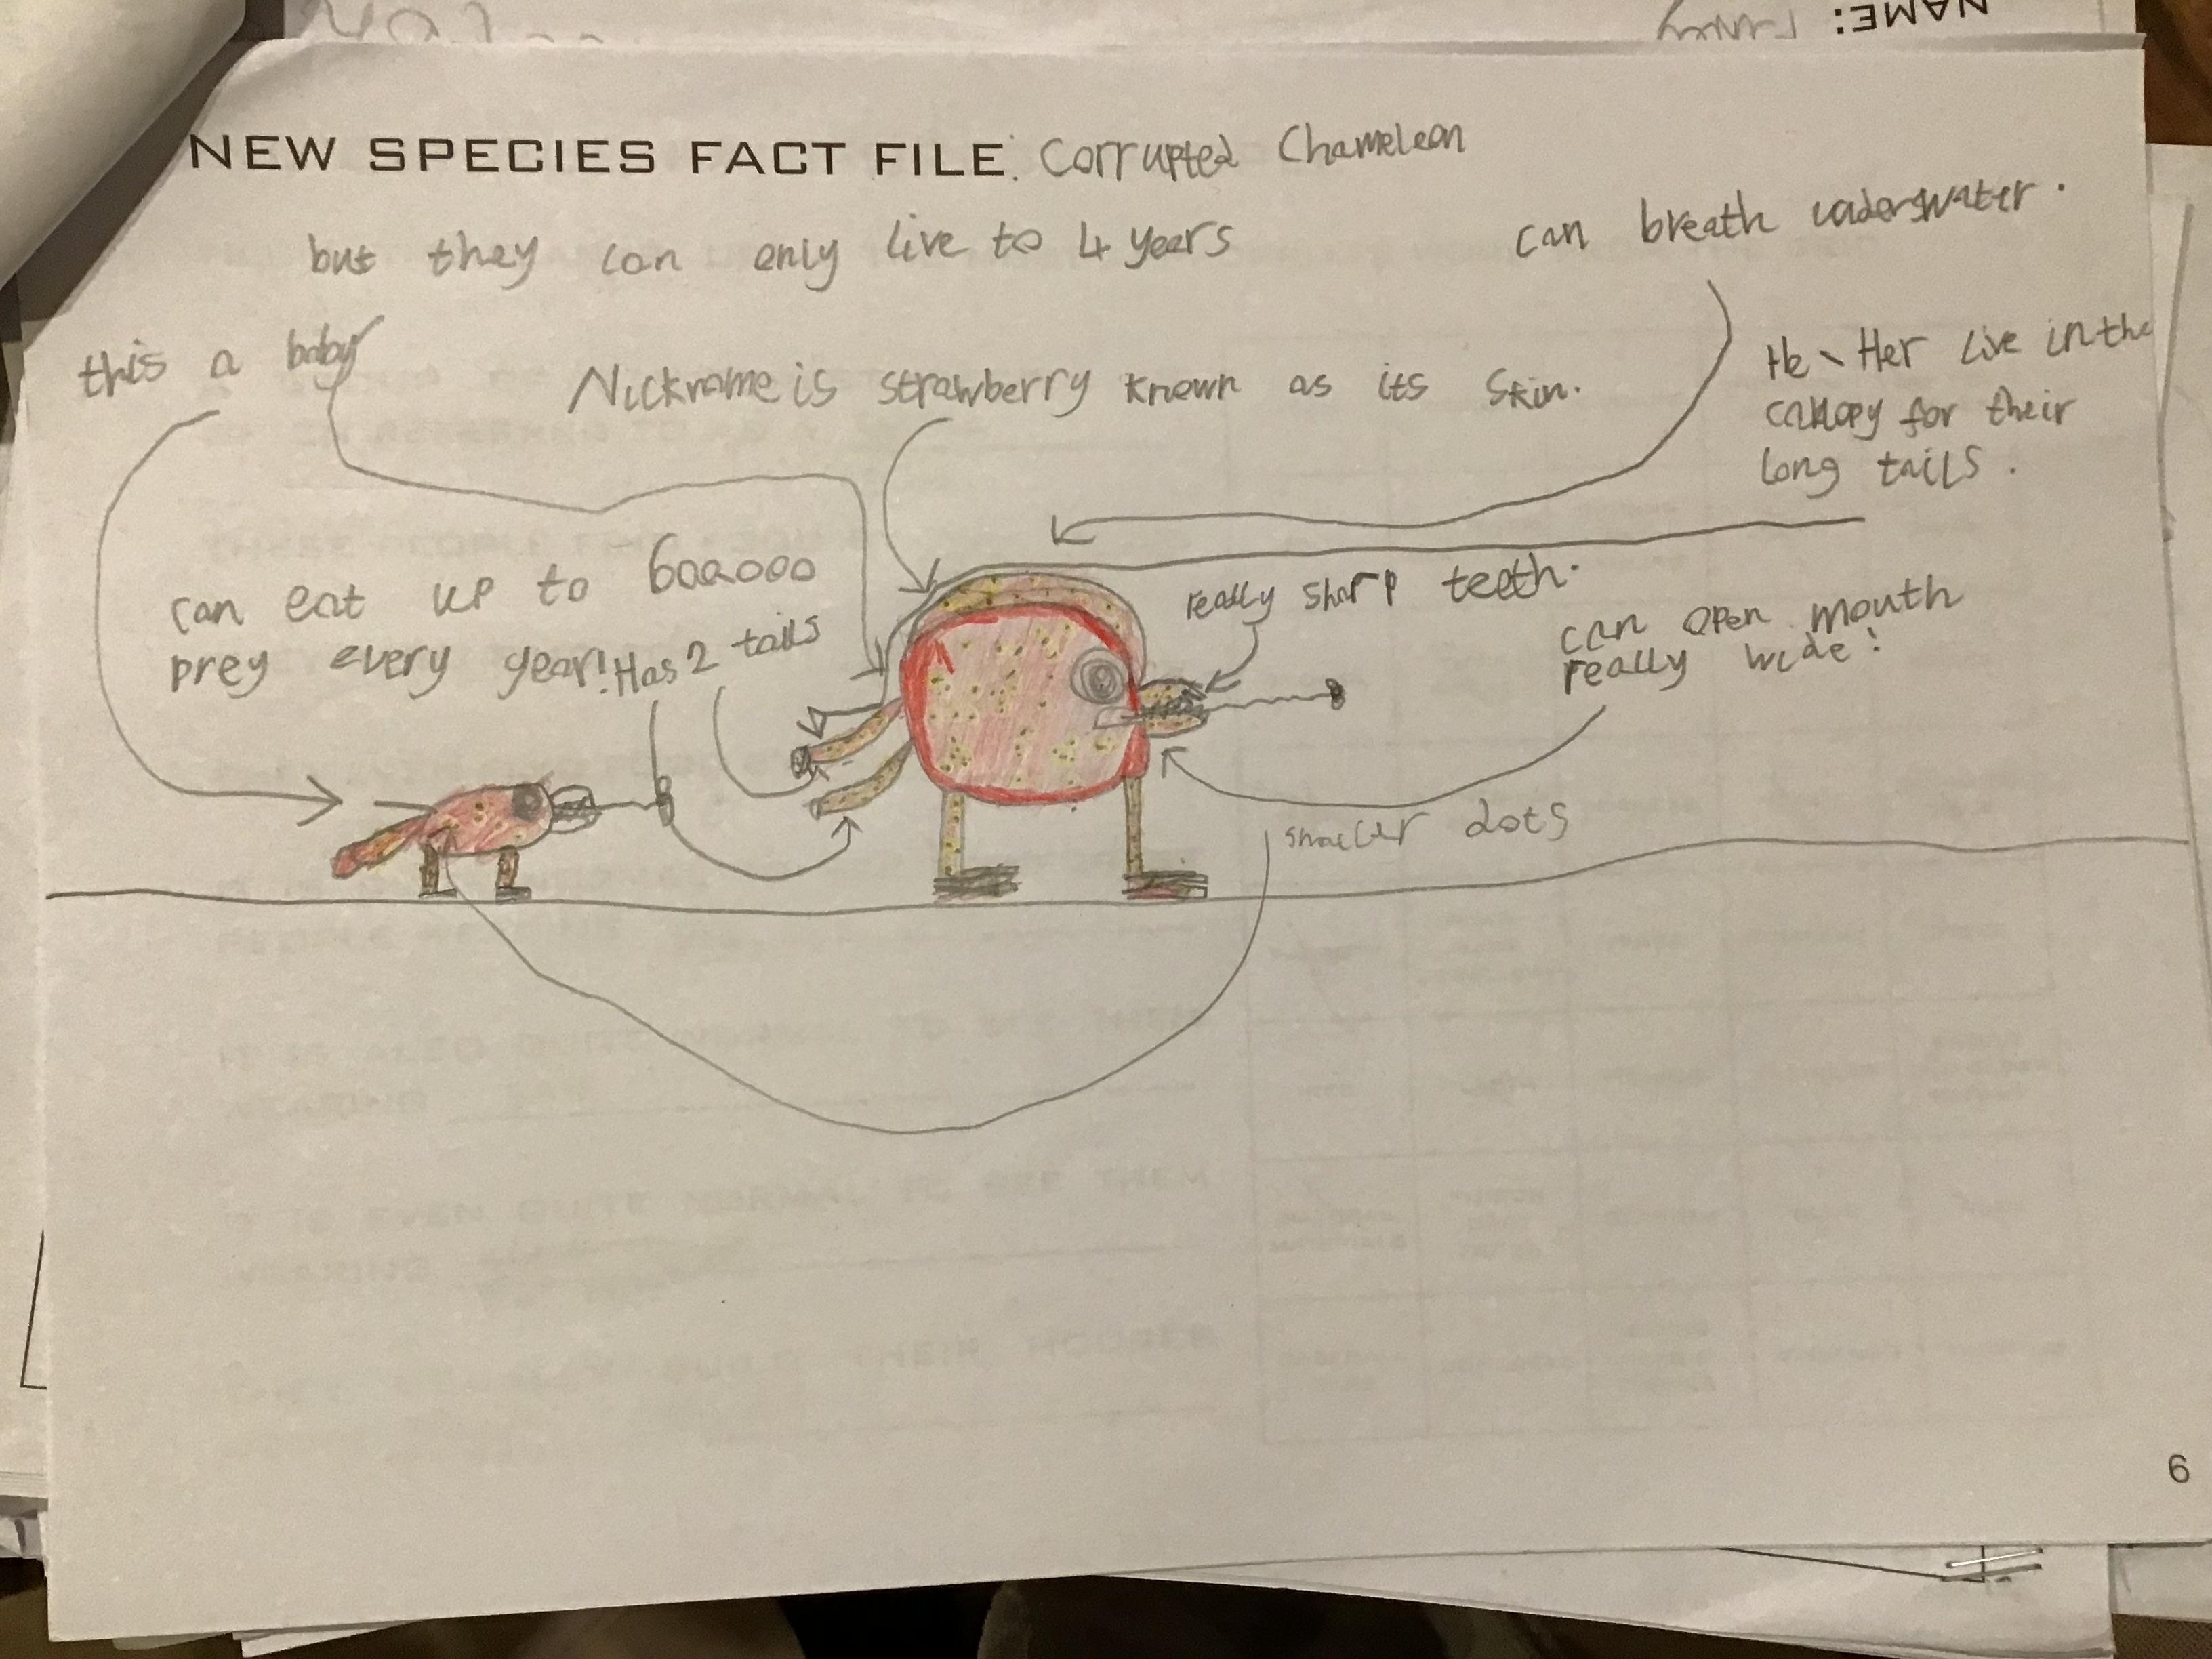 NAME:
NEW SPECIES FACT FILE: Corrupted Chameleon
but they can only live to 4 years
can breath underwater.
this a baby
Nickname is strawberry known as its skin.
He \ Her live in the
canopy for their
long tails.
can eat up to 600000
prey every year!
Has 2 tails
really sharp teeth.
can open mouth
really wide!
smaller dots
6